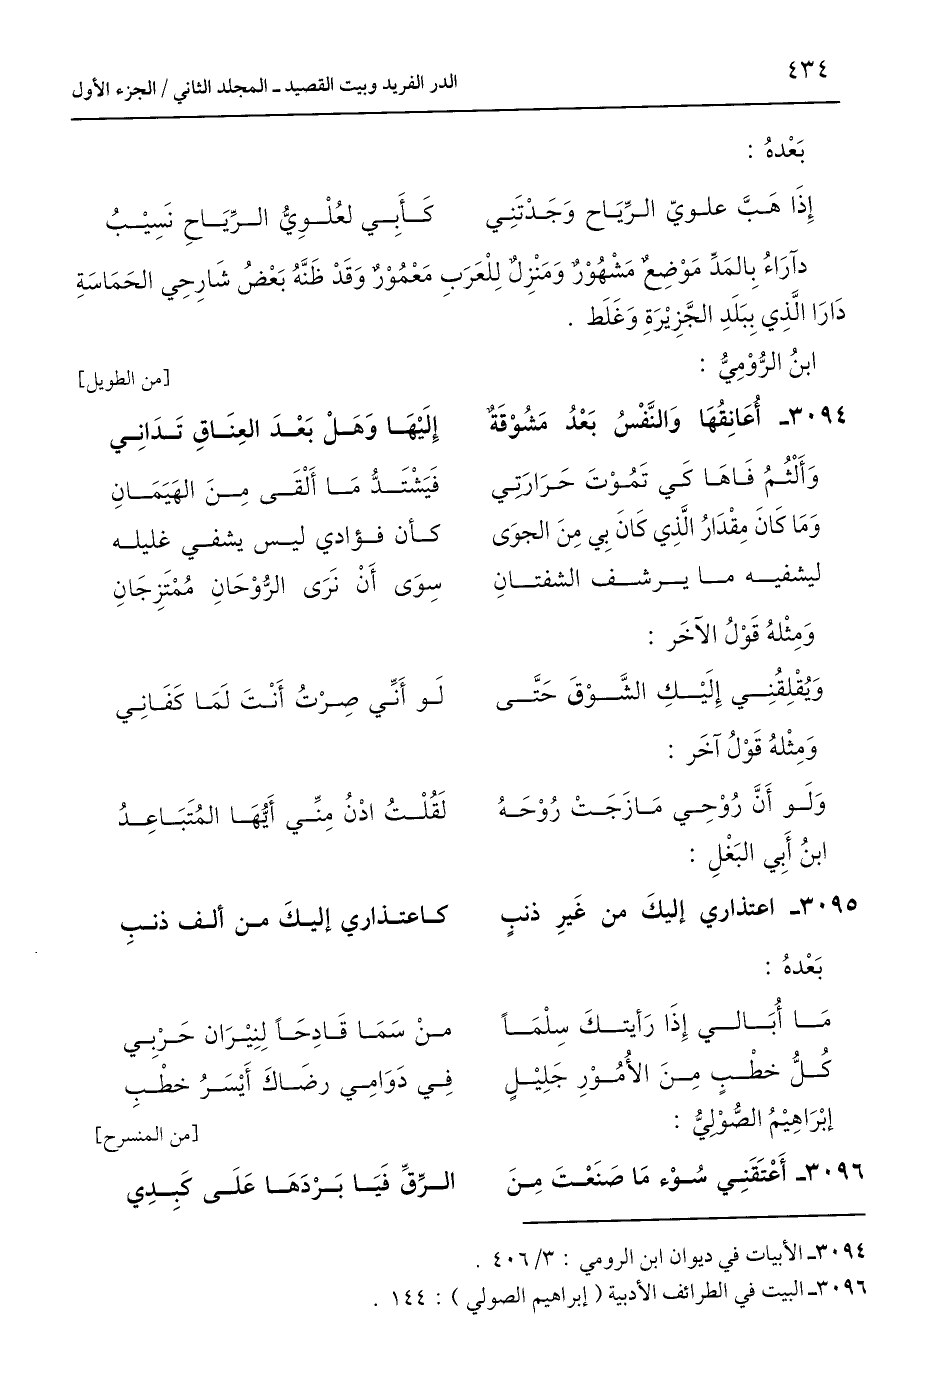 ٤٣٤
الدر الفريد وبيت القصيد ـ المجلد الثاني / الجزء الأول
بَعْدهُ :
إِذَا هَبَّ علويّ الرِّيَاحِ وَجَدْتَنِي كَأَنِي لعُلْويُّ الرِّيَاحِ نَسِيْبُ
دآرَاءُ بِالمَدِّ مَوْضِعٌ مَشْهُوْرٌ وَمَنْزِلٌ لِلْعَرَبِ مَعْمُوْرٌ وَقَدْ ظَنَّهُ بَعْضُ شَارِحِي الحَمَاسَةِ
دَارَا الَّذِي بِبَلَدِ الجَّزِيْرَةِ وَغَلَط .
ابنُ الرُّوْمِيُّ : [من الطويل]
٣٠٩٤ـ أُعَانِقُهَا وَالنَّفْسُ بَعْدُ مَشُوْقَةٌ إِلَيْهَا وَهَلْ بَعْدَ العِنَاقِ تَدَانِي
وَأَلْثُمُ فَاهَا كَي تَمُوْتَ حَرَارَتِي فَيَشْتَدُّ مَا أَلْقَى مِنَ الهَيَمَانِ
وَمَا كَانَ مِقْدَارُ الَّذِي كَانَ بِي مِنَ الجوَى كأن فؤادي ليس يشفي غليله
ليشفيه ما يرشف الشفتانِ سِوَى أَنْ نَرَى الرُّوْحَانِ مُمْتَزِجَانِ
وَمِثْلهُ قَوْلُ الآخَر :
وَيُقْلِقُنِي إِلَيْكِ الشَّوْقَ حَتَّى لَو أَنِّي صِرْتُ أَنْتَ لَمَا كَفَانِي
وَمِثْلهُ قَوْلُ آخَر :
وَلَو أَنَّ رُوْحِي مَازَجَتْ رُوْحَهُ لَقُلْتُ ادْنُ مِنِّي أَيُّهَا المُتَبَاعِدُ
ابنُ أَبِي البَغْلِ :
٣٠٩٥ـ اعتذاري إليكَ من غَيرِ ذنبٍ كاعتذاري إليكَ من ألف ذنبِ
بَعْدهُ :
مَا أُبَالي إِذَا رَأيتكَ سِلْمَاً منْ سَمَا قَادِحَاً لِنِيْرَان حَرْبِي
كُلُّ خطْبٍ مِنَ الأُمُوْرِ جَلِيْلٍ فِي دَوَامِي رضَاكَ أَيْسَرُ خطْبِ
إِبْرَاهِيْمُ الصُّوْلِيُّ : [من المنسرح]
٣٠٩٦ـ أَعْتَقَنِي سُوْء مَا صَنَعْتَ مِنَ الرِّقِّ فَيَا بَرْدَهَا عَلَى كَبِدِي
٣٠٩٤ـ الأبيات في ديوان ابن الرومي : ٣/ ٤٠٦ .
٣٠٩٦ـ البيت في الطرائف الأدبية ( إبراهيم الصولي ) : ١٤٤ .